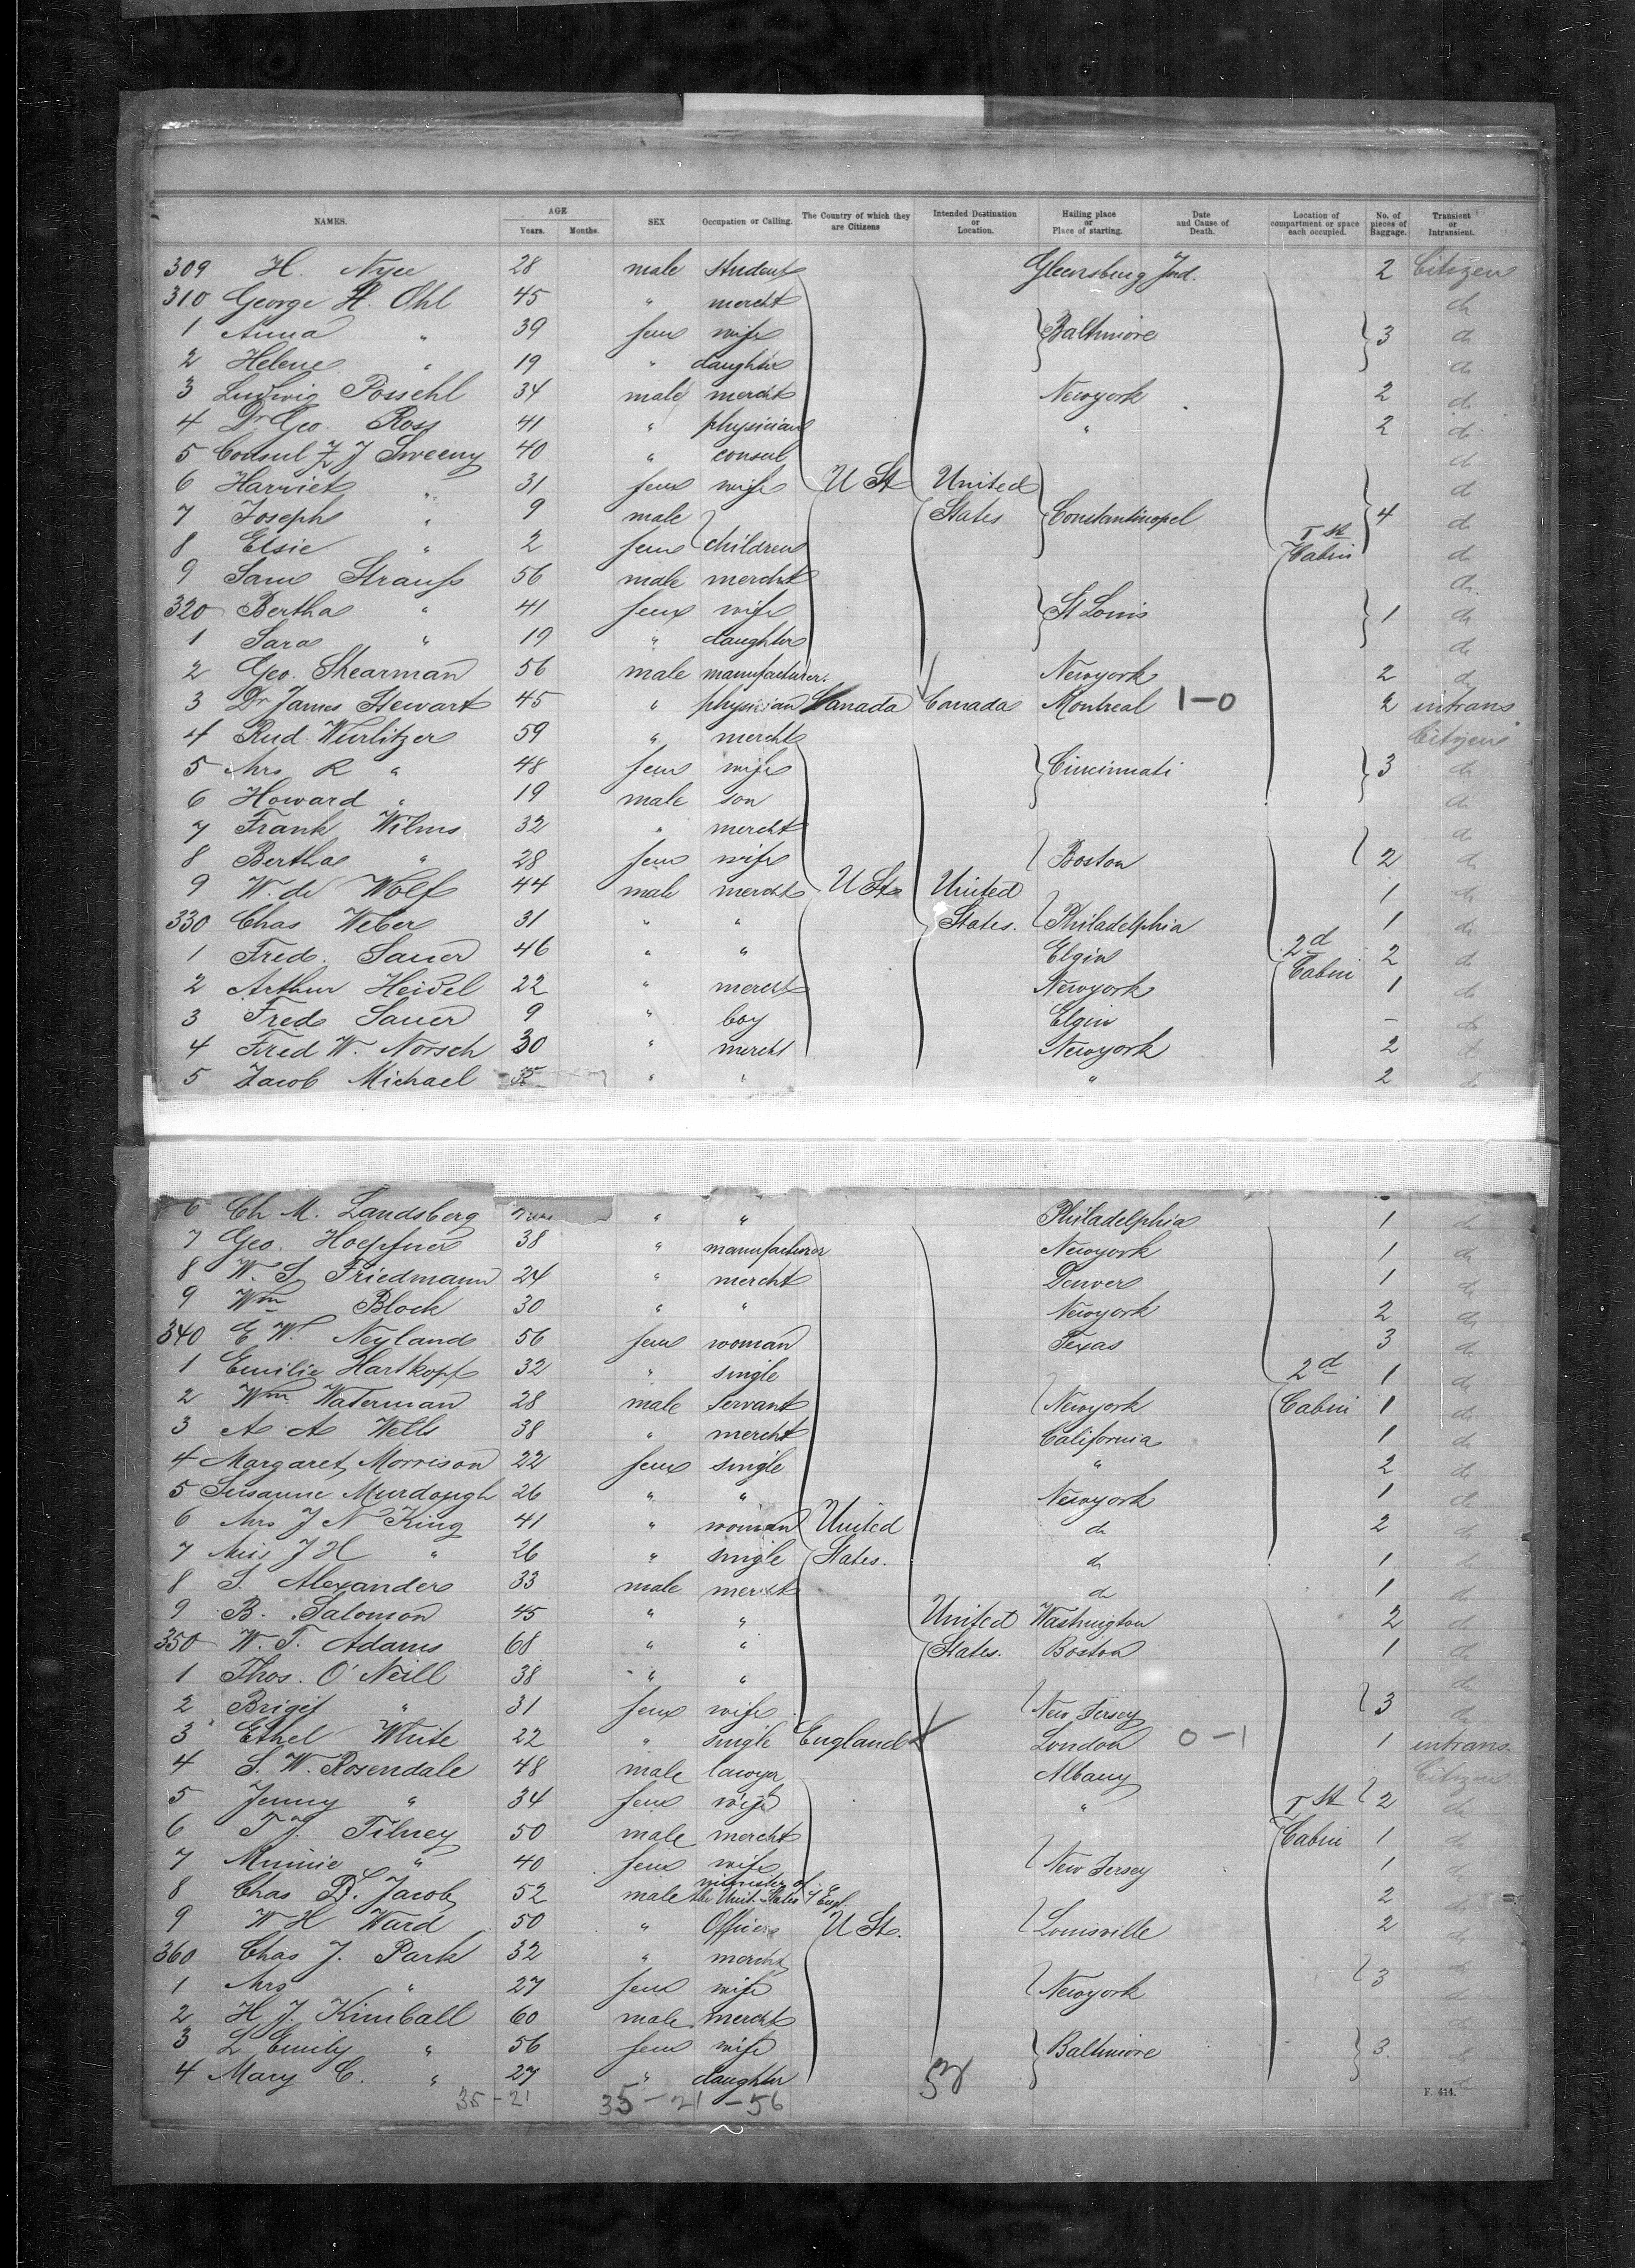 NAMES. AGE Years. Months. SEX Occupation or Calling. The Country of which they are Citizens Intended Destination or Location. Hailing place or Place of starting. Date and Cause of Death. Location of compartment or space each occupied. No. of pieces of Baggage. Transient or Intransient.
309 H. Nyce 28 male student Gleensburg Ind. 2 Citizen
310 George H. Ohl 45 " mercht do
1 Anna " 39 fem wife Baltimore 3 do
2 Helene " 19 " daughter do
3 Ludwig Possehl 34 male mercht Newyork 2 do
4 Dr Geo. Ross 41 " physician " 2 do
5 Consul Z J Sweeny 40 " consul do
6 Harriet " 31 fem wife U St United do
7 Joseph " 9 male States Constantinopel 4 do
8 Elsie " 2 fem children Ist Cabin do
9 Sam Strauss 56 male mercht do
320 Bertha " 41 fem wife St Louis 1 do
1 Sara " 19 " daughter do
2 Geo. Shearman 56 male manufacturer. Newyork 2 do
3 Dr James Stewart 45 " physician Canada Canada Montreal 1-0 2 intrans
4 Rud. Wurlitzer 59 " mercht Citizen
5 Mrs R " 48 fem wife Cincinnati 3 do
6 Howard " 19 male son do
7 Frank Wilms 32 " mercht do
8 Bertha " 28 fem wife Boston 2 do
9 W. de Wolf 44 male mercht U St United 1 do
330 Chas Weber 31 " " States. Philadelphia 1 do
1 Fred. Sauer 46 " " Elgin 2d 2 do
2 Arthur Heidel 22 " mercht Newyork Cabin 1 do
3 Fred Sauer 9 " boy Elgin - do
4 Fred W. Norsch 30 " mercht Newyork 2 do
5 Jacob Michael 35 " " " 2 do
6 Ch M. Landsberg " " Philadelphia 1 do
7 Geo. Hoepfner 38 " manufacturer Newyork 1 do
8 W. S. Friedmann 24 " mercht Denver 1 do
9 Wm Block 30 " " Newyork 2 do
340 E W. Neyland 56 fem woman Texas 3 do
1 Emilie Hartkopf 32 " single 2d 1 do
2 Wm Waterman 28 male Servant Newyork Cabin 1 do
3 A A Wells 38 " mercht California 1 do
4 Margaret Morrison 22 fem single " 2 do
5 Susanne Murdough 26 " " Newyork 1 do
6 Mrs J N King 41 " woman United do 2 do
7 Miss J H " 26 " single States. do 1 do
8 S. Alexander 33 male mercht do 1 do
9 B. Salomon 45 " " United Washington 2 do
350 W. T. Adams 68 " " States. Boston 1 do
1 Thos. O'Neill 38 " " do
2 Briget " 31 fem wife New Jersey 3 do
3 Ethel White 22 " single England London 0-1 1 intrans.
4 S. W. Rosendale 48 male lawyer Albany Citizen
5 Jenny " 34 fem wife " Ist 2 do
6 T J. Tilney 50 male mercht Cabin 1 do
7 Minnie " 40 fem wife New Jersey 1 do
8 Chas D. Jacob 52 male minister of the Unit. States 2 do
9 W H Ward 50 " Officer U St. Louisville 2 do
360 Chas J. Park 32 " mercht do
1 Mrs " 27 fem wife Newyork 3 do
2 H J. Kimball 60 male mercht do
3 L Emily " 56 fem wife Baltimore 3. do
4 Mary C. " 27 " daughter do
35-21 35-21-56 F. 414.